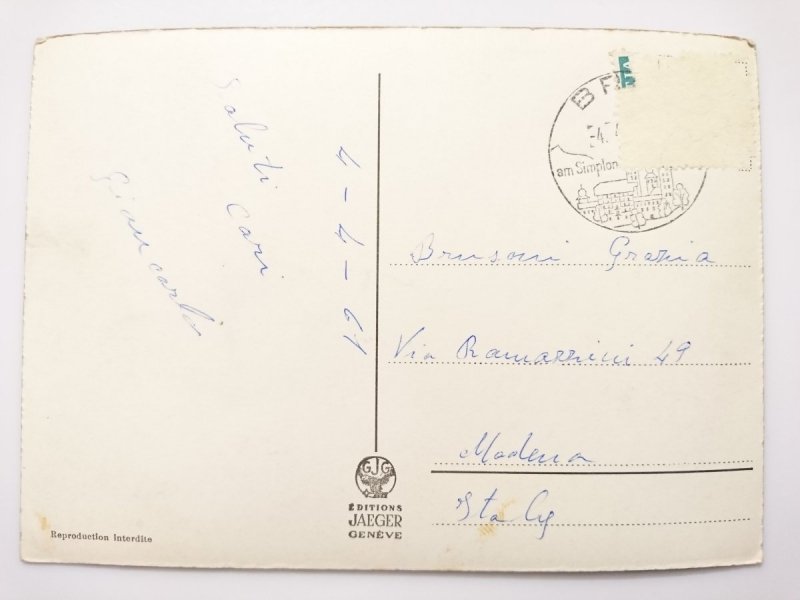 Saluti Cari
Giancarlo
4-4-67
am Simplon
Brusoni Grazia
Via Ramazzini 49
Modena
Italy
GJG
ÉDITIONS
JAEGER
GENÈVE
Reproduction Interdite